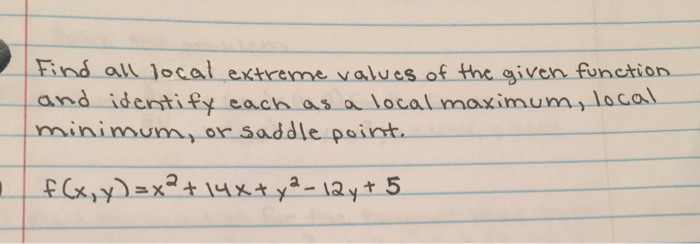 Find all local extreme values of the given function
and identify each as a local maximum, local
minimum, or saddle point.
f(x,y)=x²+14x+y²-12y+5